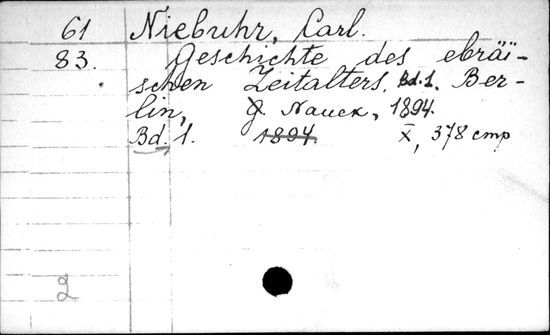 61 Niebuhr, Carl.
83. Geschichte des ebräi-
schen Zeitalters. Bd. 1. Ber-
lin, Nauck, 1894.
Bd. 1. 1894. X, 378 стр
2